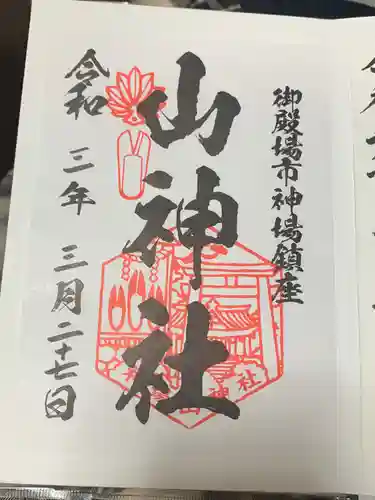 御殿場市神場鎮座
山神社
令和三年三月二十七日
山神社